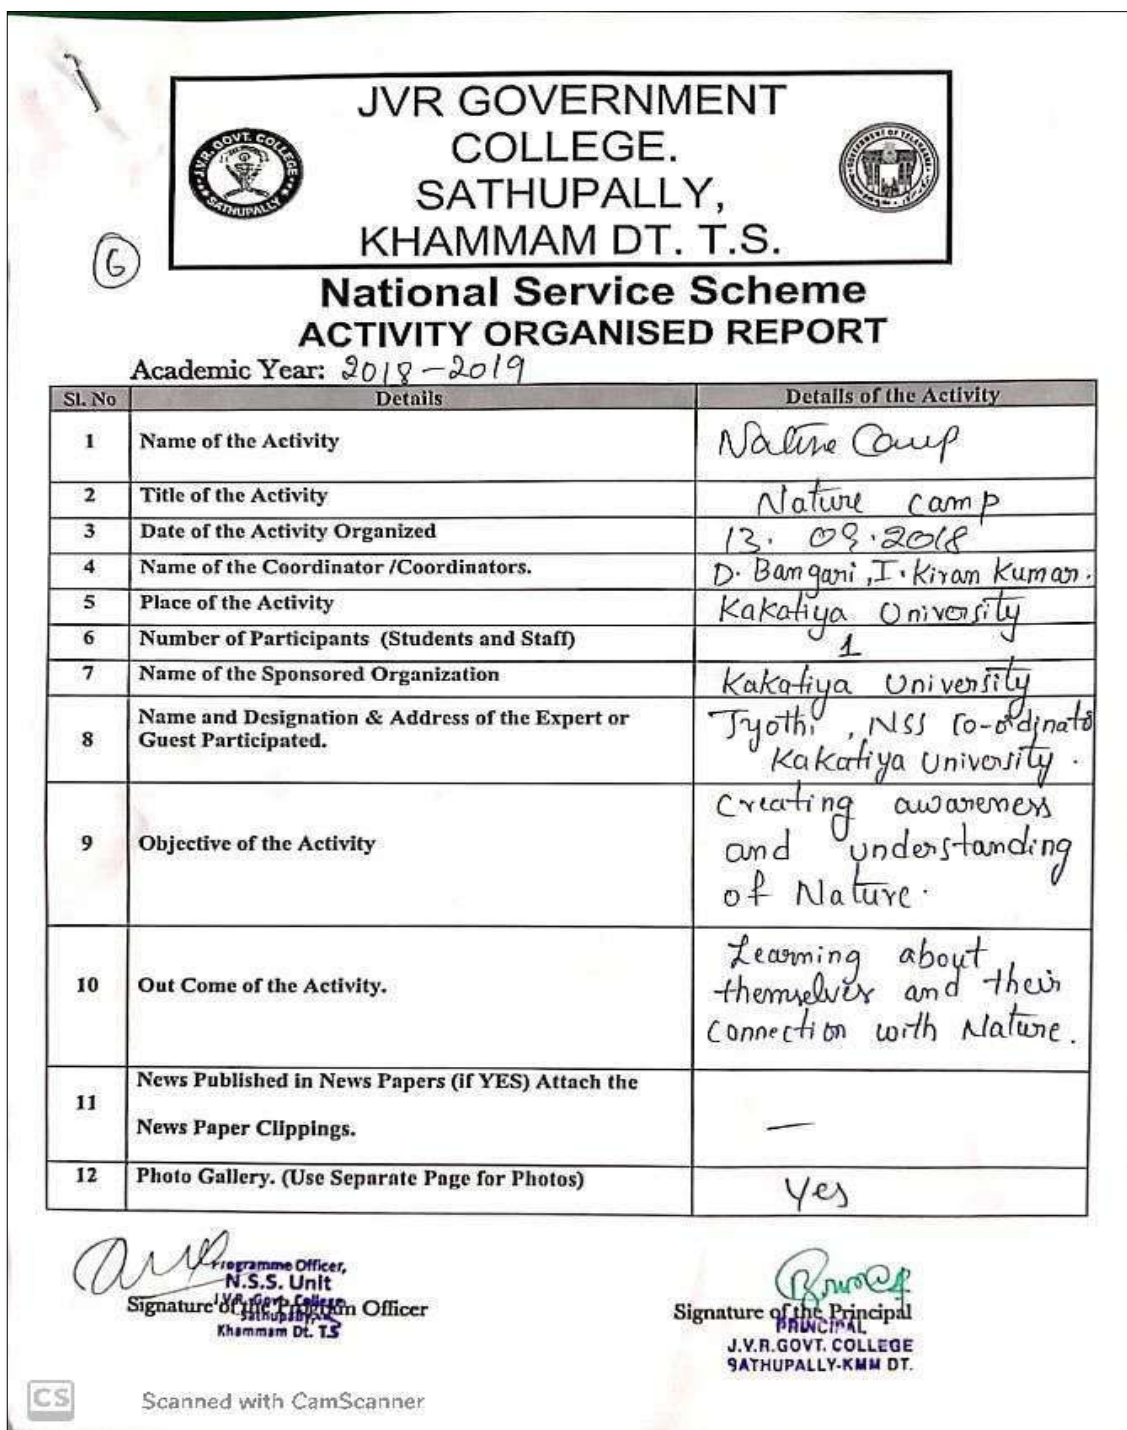 JVR GOVERNMENT
COLLEGE.
SATHUPALLY,
KHAMMAM DT. T.S.
J.V.R. GOVT. COLLEGE
SATHUPALLY
GOVERNMENT OF TELANGANA
6
National Service Scheme
ACTIVITY ORGANISED REPORT
Academic Year: 2018-2019
Sl. No Details Details of the Activity
1 Name of the Activity Nature Camp
2 Title of the Activity Nature camp
3 Date of the Activity Organized 13. 09.2018
4 Name of the Coordinator /Coordinators. D. Bangari, I. Kiran Kumar.
5 Place of the Activity Kakatiya University
6 Number of Participants (Students and Staff) 1
7 Name of the Sponsored Organization Kakatiya University
8 Name and Designation & Address of the Expert or
Guest Participated.
Jyothi, NSS Co-ordinato
Kakatiya University.
9 Objective of the Activity
Creating awareness
and understanding
of Nature.
10 Out Come of the Activity.
Learning about
themselves and their
connection with Nature.
11 News Published in News Papers (if YES) Attach the
News Paper Clippings. —
12 Photo Gallery. (Use Separate Page for Photos) Yes
Programme Officer,
N.S.S. Unit
Signature of the Program Officer
J.V.R. Govt. College
Sathupally
Khammam Dt. TS
Signature of the Principal
PRINCIPAL
J.V.R.GOVT. COLLEGE
SATHUPALLY-KMM DT.
CS Scanned with CamScanner